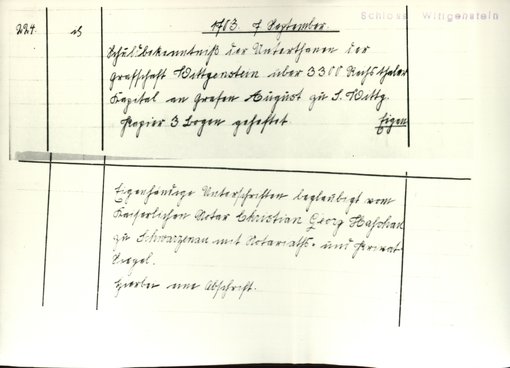 Schloss Wittgenstein
224. 1703. 7 September.
Schuldbekenntniß der Unterthanen der
Grafschaft Wittgenstein über 3300 Reichsthaler
Kapital an Grafen August zu S. Wittg.
Papier 3 Bogen geheftet Eigen
Eigenhändige Unterschriften beglaubigt vom
Kaiserlichen Notar Christian Georg
zu Schwarzenau mit Notariats- und Privat-
Siegel.
Hierbei eine Abschrift.